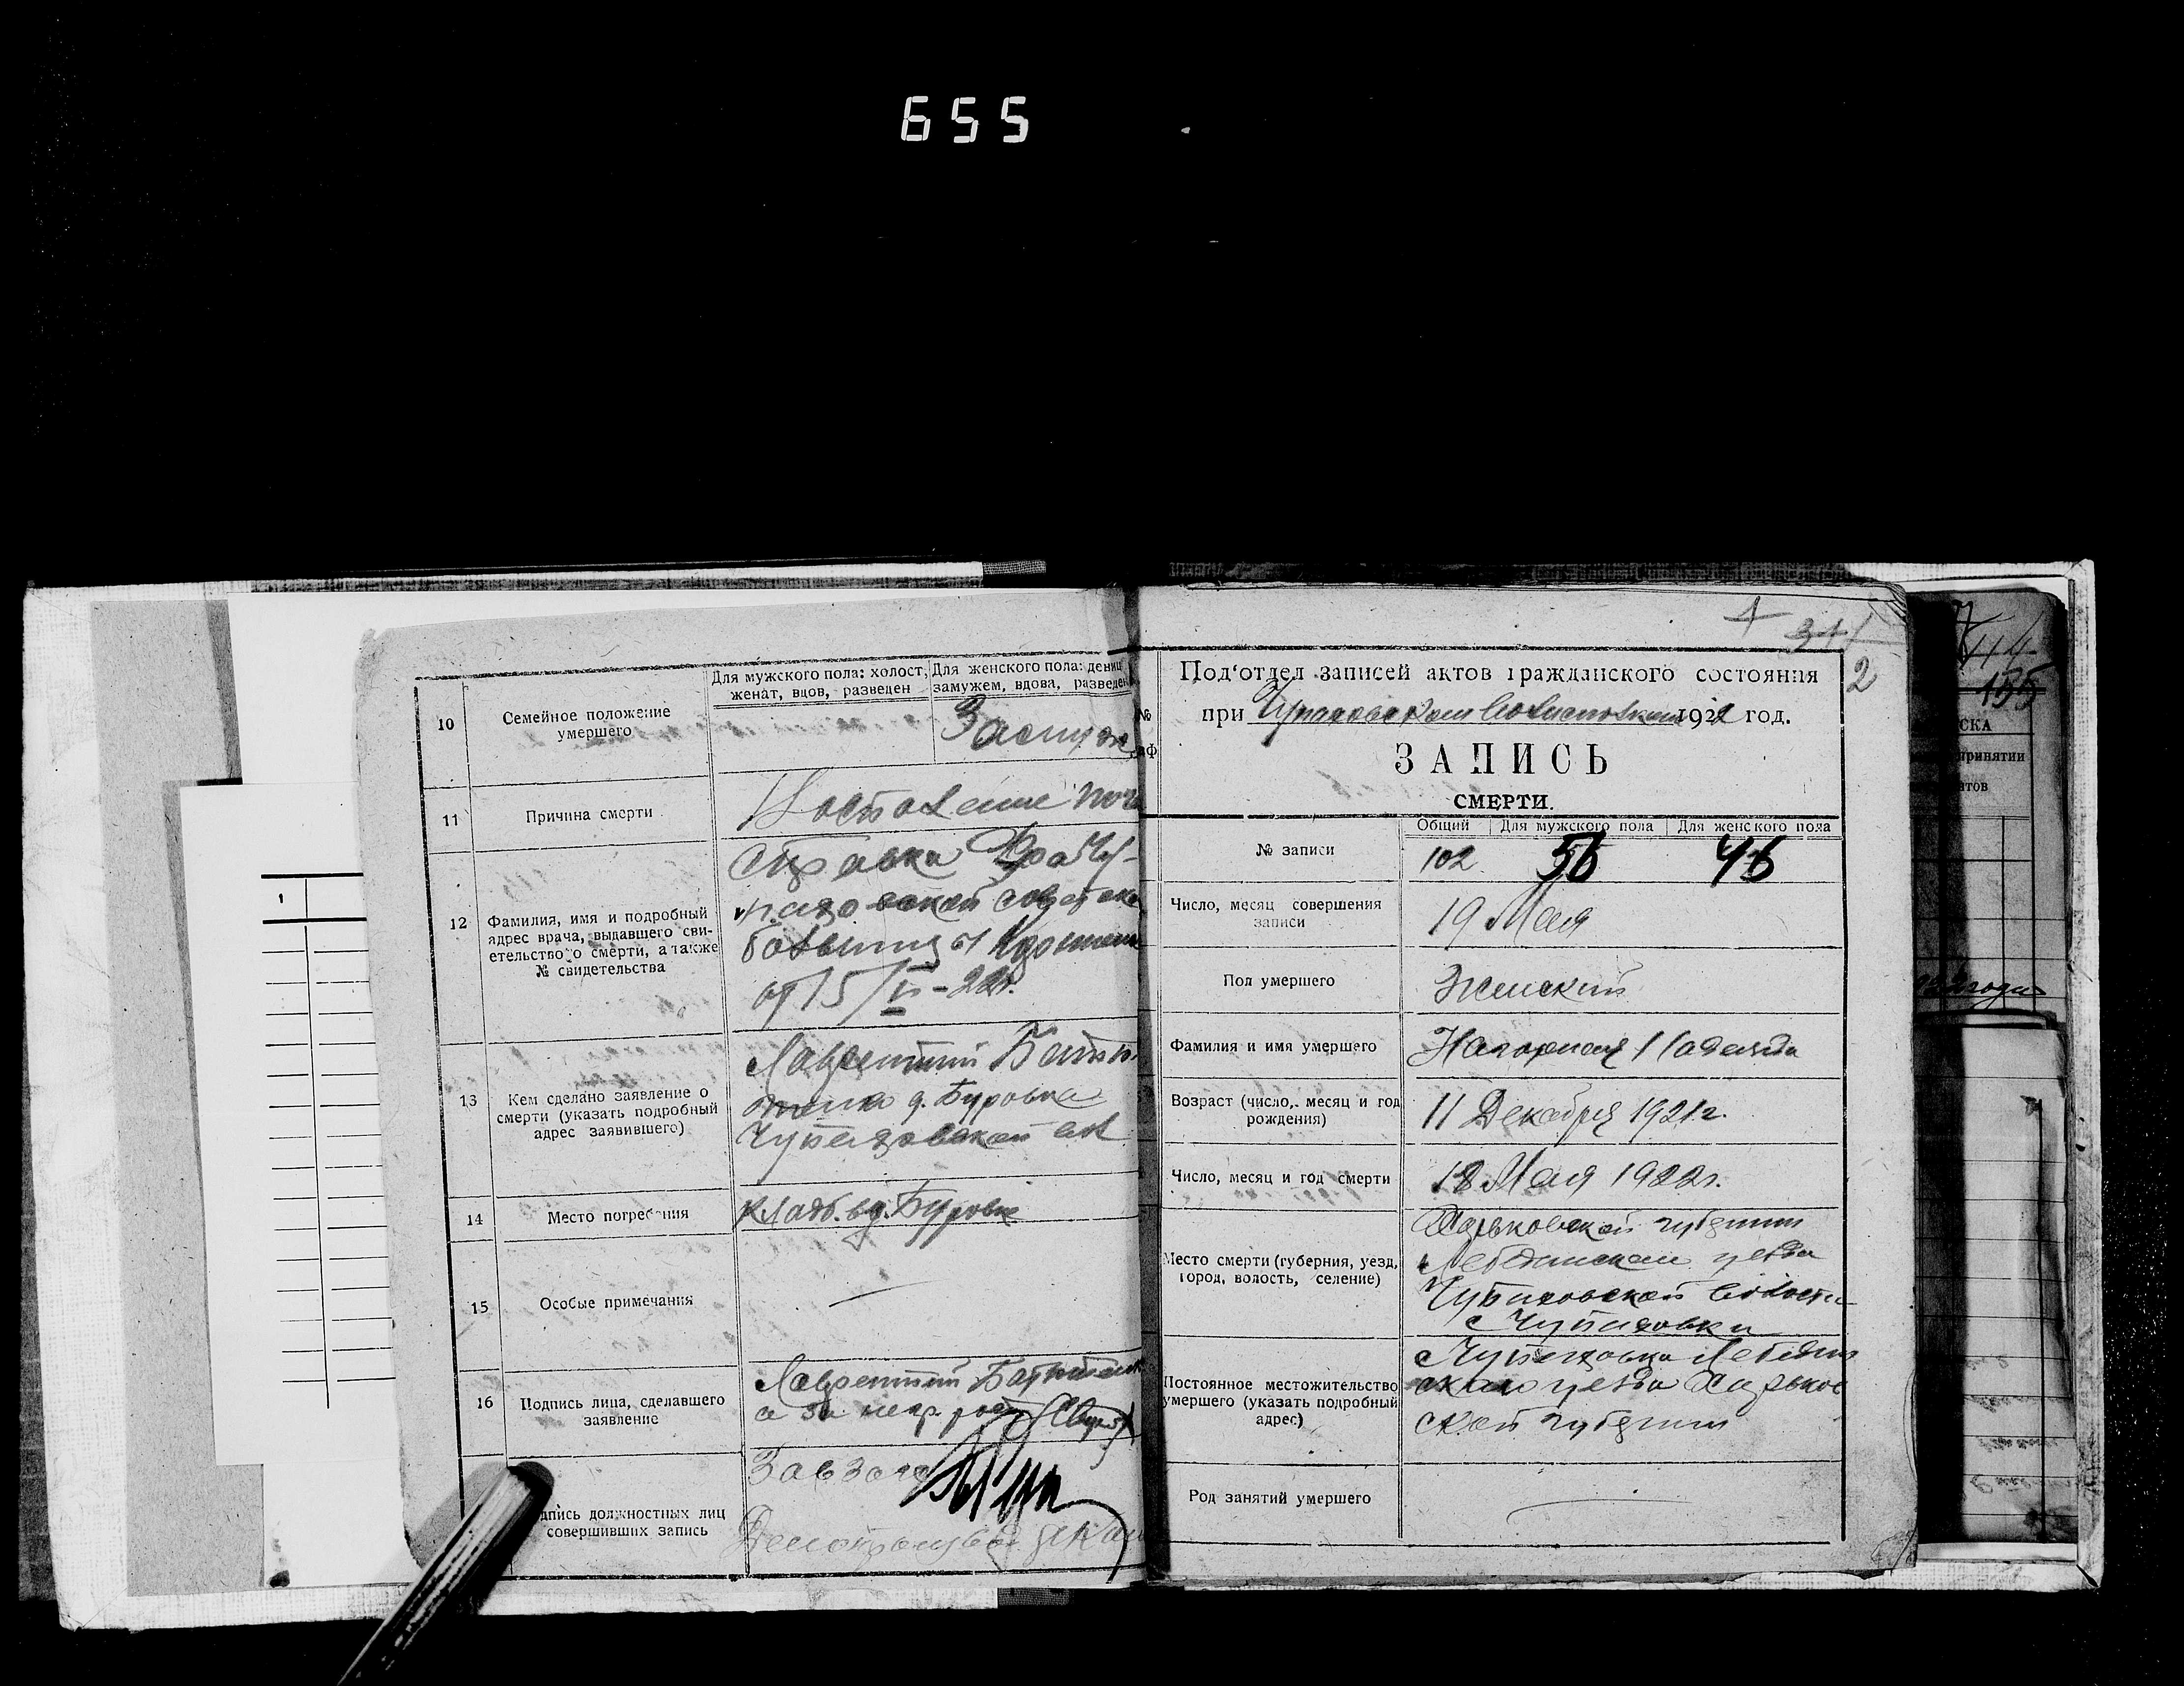 655
Для мужского пола: холост, женат, вдов, разведен
Для женского пола: девиц замужем, вдова, разведен
10
Семейное положение умершего
Замуж
11
Причина смерти
Воспаление поч
12
Фамилия, имя и подробный адрес врача, выдавшего сви-етельство о смерти, а также № свидетельства
Справка
больницы
от 15/V-22г.
13
Кем сделано заявление о смерти (указать подробный адрес заявившего)
Лаврентий
д. Буровка
Чупаховской вол
14
Место погребения
Кладб. в д. Буровке
15
Особые примечания
16
Подпись лица, сделавшего заявление
Лаврентий
а за негр. рос
дпись должностных лиц совершивших запись
Завзаг
1
31
2
Под'отдел записей актов гражданского состояния
при Чупаховском Волисполкоме 1922 год.
ЗАПИСЬ
СМЕРТИ.
Общий
Для мужского пола
Для женского пола
№ записи
102 56 46
Число, месяц совершения записи
19 Мая
Пол умершего
Женский
Фамилия и имя умершего
Нагорная Надежда
Возраст (число, месяц и год рождения)
11 Декабря 1921 г.
Число, месяц и год смерти
18 Мая 1922 г.
Место смерти (губерния, уезд, город, волость, селение)
Харьковской губернии
Лебединском уезда
Чупаховской волости
с Чупаховки
Постоянное местожительство умершего (указать подробный адрес)
с Чупаховка Лебедин
ского уезда Харьков
ской губернии
Род занятий умершего
114
155
СКА
принятии
тов
года
1